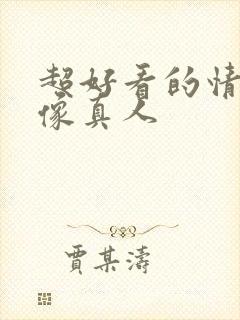 超好看的情
像真人
贾某涛